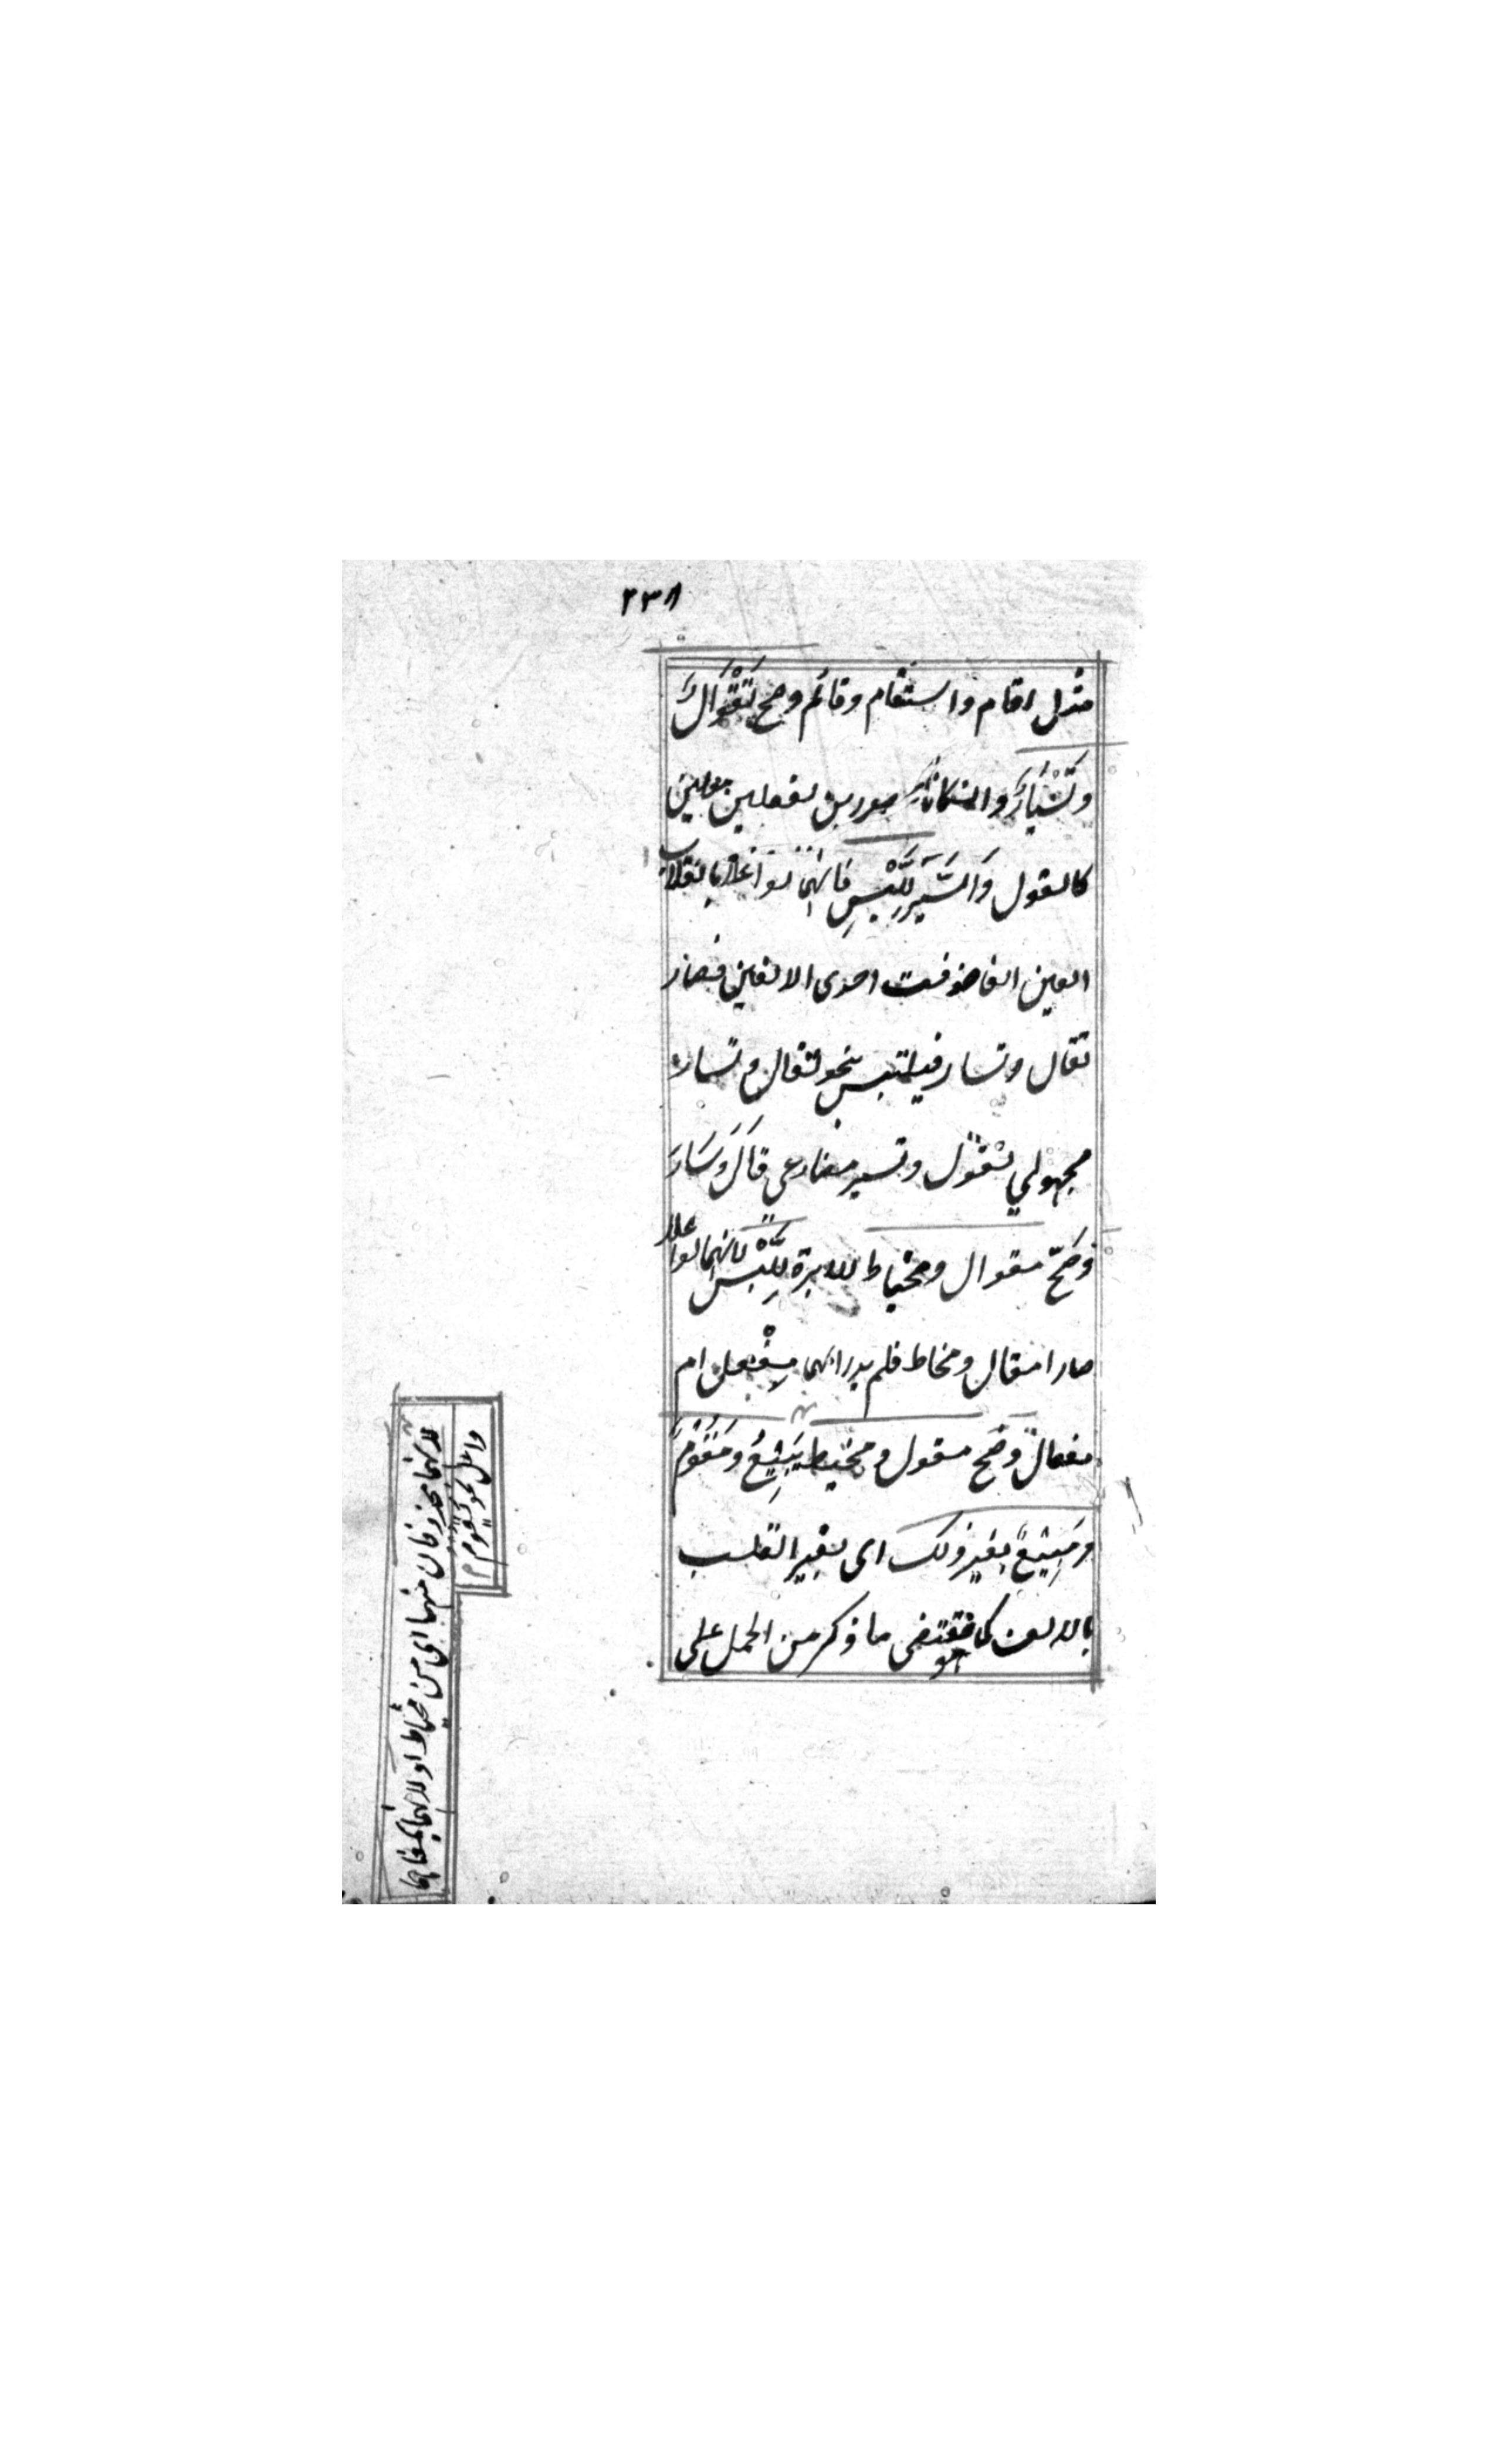 ٢٣٨
مثل اقام واستقام وقائم وصح تَقْوَالٌ
وتَسْيَارٌ والنكانا مصدرين لفعلين معلين
كالقول وَالسَّيْرِ لِلَّبْسِ فانهما لو أعلّا بانقلاب
العين الفا حذفت احدى الالفين فصار
تقال وتسار فيلتبس بنحو تقال وتسار
مجهولي تقول وتسير مضارعى قَالَ وَسَارَ
وَصَحّ مقوال ومخياط للابرة لِلَّبْسِ لانهما لو اعلا
صارا مقال ومخاط فلم يدر انهما مِفْعل ام
مفعال وصَح مقول ومخيط يَبِيْعُ ومَقُوْمٌ
ومَبِيْعٌ بغير ذلك اى بغير القلب
بالالف كما هو مقتضى ما ذكر من الحمل على
واعل نحو يَقُوم
لانهما محذوفان منهما اى من مخياط او لانهما بمعناهما